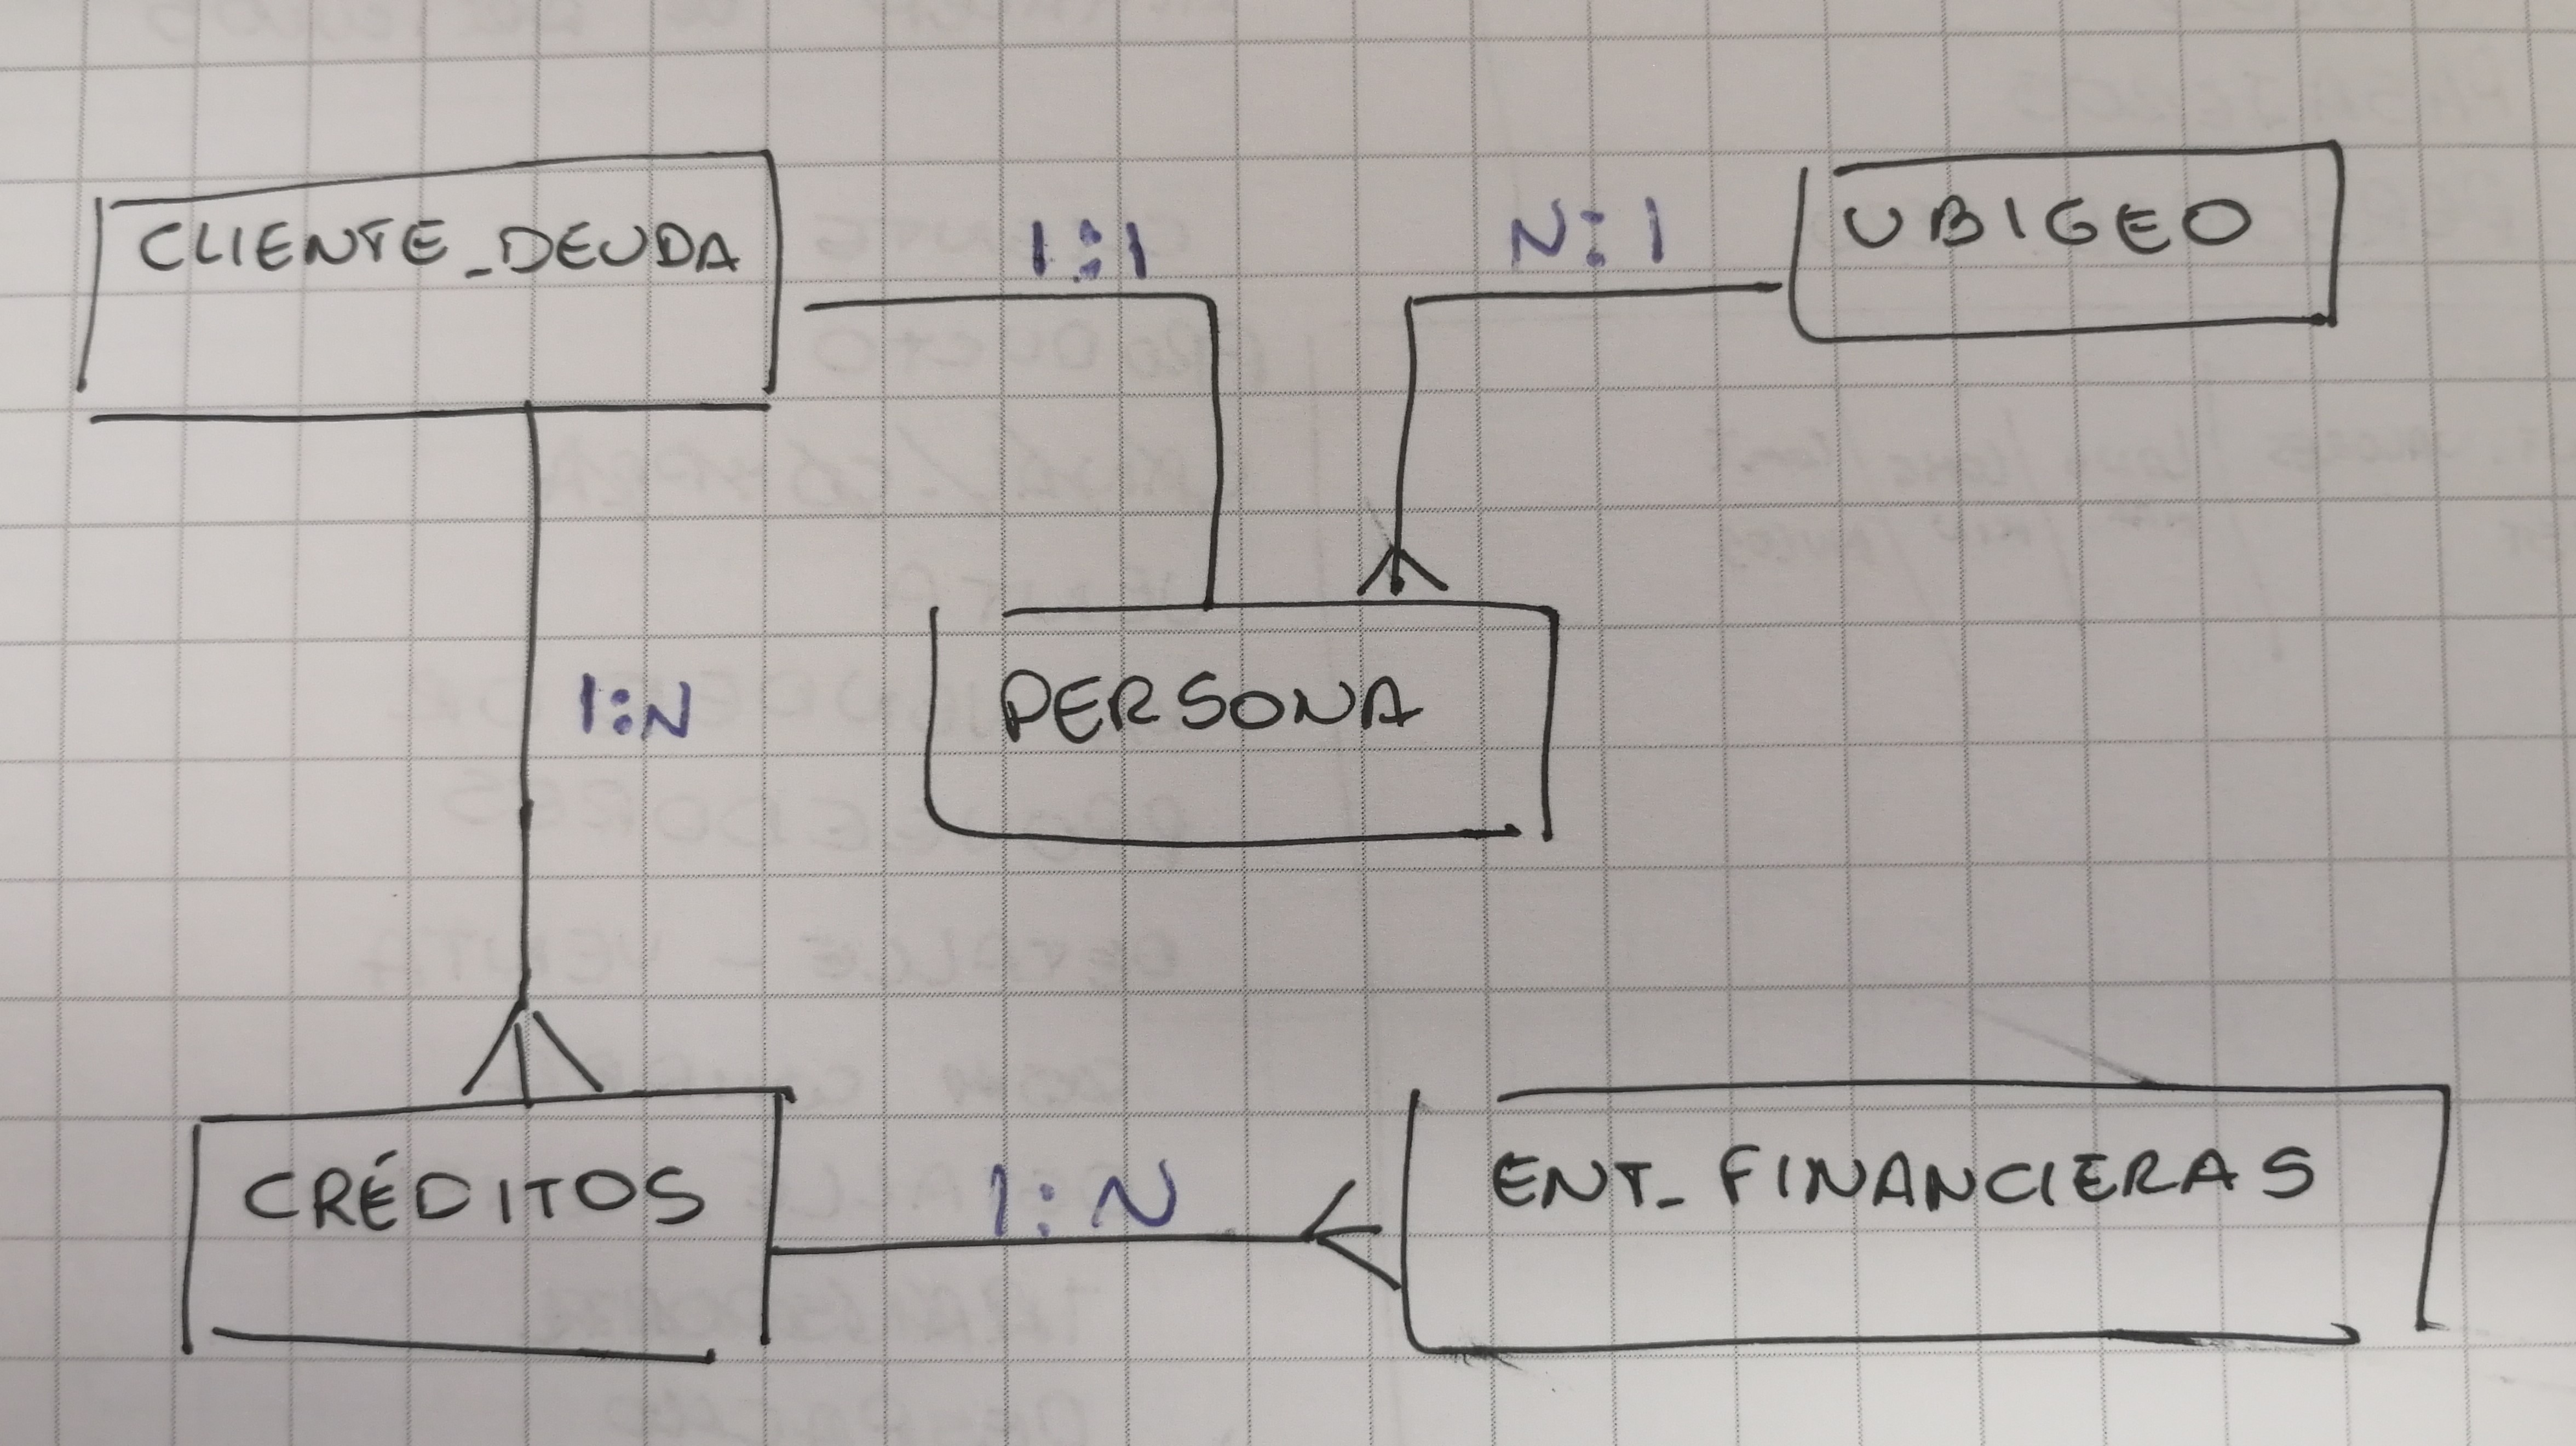 CLIENTE_DEUDA
1:1
N:1
UBIGEO
1:N
PERSONA
CRÉDITOS
1:N
ENT_FINANCIERAS